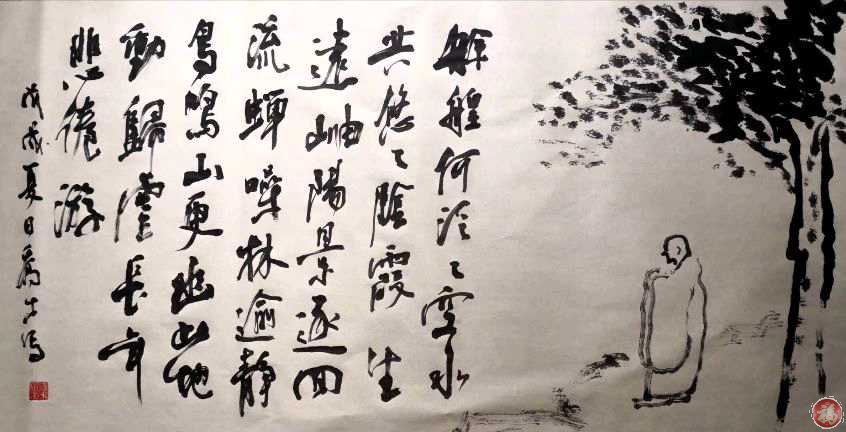 艅艎何泛〻空水
共悠〻陰霞生
遠岫陽景逐回
流蟬噪林逾靜
鳥鳴山更幽此地
動歸長年
悲倦游
戊戌夏日
福